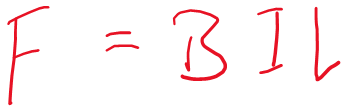 F = BIL